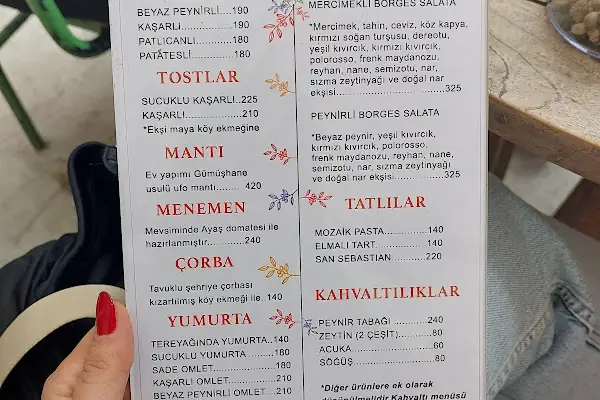 BEYAZ PEYNİRLİ..190
KAŞARLI..............190
PATLICANLI........180
PATATESLİ.........180
TOSTLAR
SUCUKLU KAŞARLI..225
KAŞARLI...............210
*Ekşi maya köy ekmeğine
MANTI
Ev yapımı Gümüşhane
usulü ufo mantı......... 420
MENEMEN
Mevsiminde Ayaş domatesi ile
hazırlanmıştır............240
ÇORBA
Tavuklu şehriye çorbası
kızartılmış köy ekmeği ile. 140
YUMURTA
TEREYAĞINDA YUMURTA..140
SUCUKLU YUMURTA ........180
SADE OMLET................180
KAŞARLI OMLET............210
BEYAZ PEYNİRLİ OMLET...210
MERCİMEKLİ BORGES SALATA
*Mercimek, tahin, ceviz, köz kapya,
kırmızı soğan turşusu, dereotu,
yeşil kıvırcık, kırmızı kıvırcık,
polorosso, frenk maydanozu,
reyhan, nane, semizotu, nar,
sızma zeytinyağı ve doğal nar
ekşisi..............................325
PEYNİRLİ BORGES SALATA
*Beyaz peynir, yeşil kıvırcık,
kırmızı kıvırcık, polorosso,
frenk maydanozu, reyhan, nane,
semizotu, nar, sızma zeytinyağı
ve doğal nar ekşisi.................325
TATLILAR
MOZAİK PASTA...........140
ELMALI TART.............140
SAN SEBASTIAN.........220
KAHVALTILIKLAR
PEYNİR TABAĞI ............240
ZEYTİN (2 ÇEŞİT)...........80
ACUKA ........................60
SÖĞÜŞ ........................80
*Diğer ürünlere ek olarak
düşünülmelidir Kahvaltı menüsü